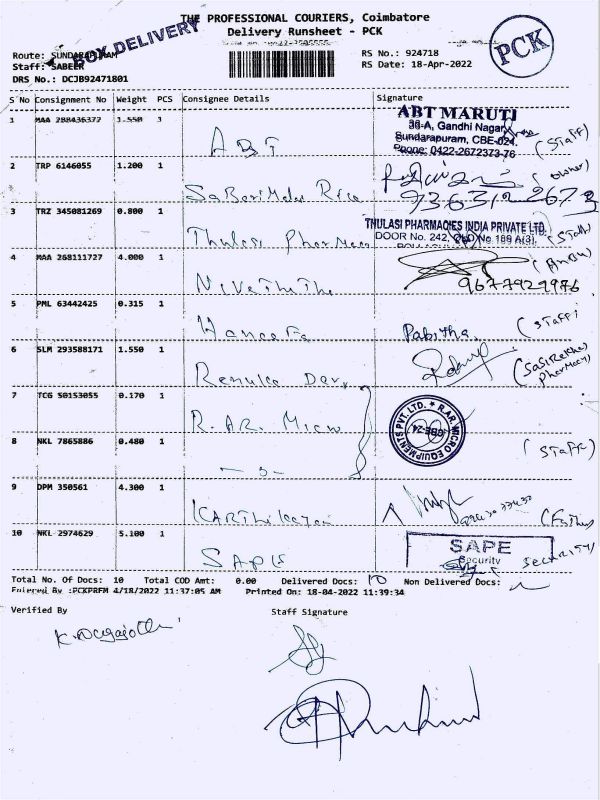 THE PROFESSIONAL COURIERS, Coimbatore
Delivery Runsheet - PCK
BOX DELIVERY
PCK
Route: SUNDARAPURAM
Staff: SABEER
DRS No.: DCJB92471801
RS No.: 924718
RS Date: 18-Apr-2022
S No Consignment No Weight PCS Consignee Details Signature
1 MAA 288436372 1.550 3 ABT
ABT MARUTI
30-A, Gandhi Nagar
Sundarapuram, CBE-024.
Phone: 0422-2672373-76
(Staff)
2 TRP 6146055 1.200 1
(owner)
3 TRZ 345081269 0.800 1 Thulasi Pharmacy
THULASI PHARMACIES INDIA PRIVATE LTD.
DOOR No. 242, OLD No. 189 A(3),
4 MAA 268111727 4.000 1
(Anbu)
9677929976
5 PML 63442425 0.315 1 Haneefa Pabitha
(Staff)
6 SLM 293588171 1.550 1 Renuka Devi
7 TCG 50153055 0.170 1 R. AR. Micro
R.AR. MICRO EQUIPMENTS PVT. LTD.
CBE-24
8 NKL 7865886 0.480 1
(Staff)
9 DPM 350561 4.300 1 Karthikeyan
10 NKL 2974629 5.100 1 SAPE
SAPE
Security
Total No. Of Docs: 10 Total COD Amt: 0.00 Delivered Docs: 10 Non Delivered Docs:
Entered By :PCKPREM 4/18/2022 11:37:05 AM Printed On: 18-04-2022 11:39:34
Verified By Staff Signature